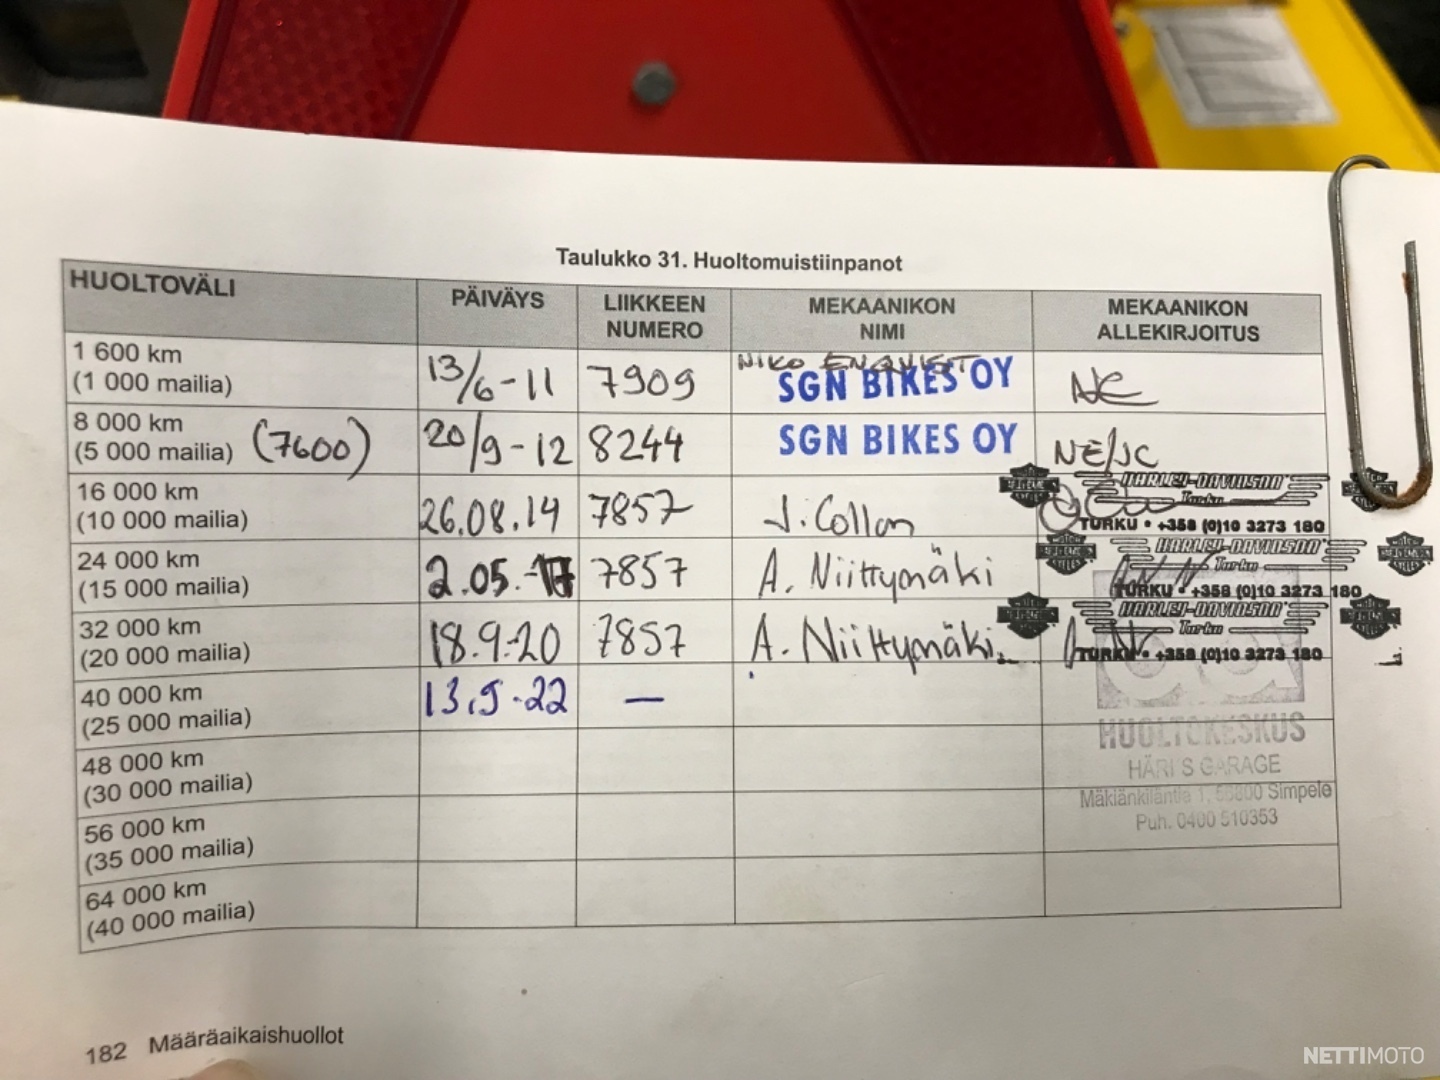 Taulukko 31. Huoltomuistiinpanot
HUOLTOVÄLI
PÄIVÄYS
LIIKKEEN
NUMERO
MEKAANIKON
NIMI
MEKAANIKON
ALLEKIRJOITUS
1 600 km
(1 000 mailia)
13/6-11
7909
NIKO ENQVIST
SGN BIKES OY
NE
8 000 km
(5 000 mailia) (7600)
20/9-12
8244
SGN BIKES OY
NE/JC
16 000 km
(10 000 mailia)
26.08.14
7857
J. Collan
HARLEY-DAVIDSON
Turku
TURKU • +358 (0)10 3273 180
24 000 km
(15 000 mailia)
2.05.-17
7857
A. Niittymäki
HARLEY-DAVIDSON
Turku
TURKU • +358 (0)10 3273 180
32 000 km
(20 000 mailia)
18.9.20
7857
A. Niittymäki
HARLEY-DAVIDSON
Turku
TURKU • +358 (0)10 3273 180
40 000 km
(25 000 mailia)
13.5.-22
—
HUOLTOKESKUS
GARAGE
Simpele
Puh. 0400 510353
48 000 km
(30 000 mailia)
56 000 km
(35 000 mailia)
64 000 km
(40 000 mailia)
182 Määräaikaishuollot
NETTIMOTO